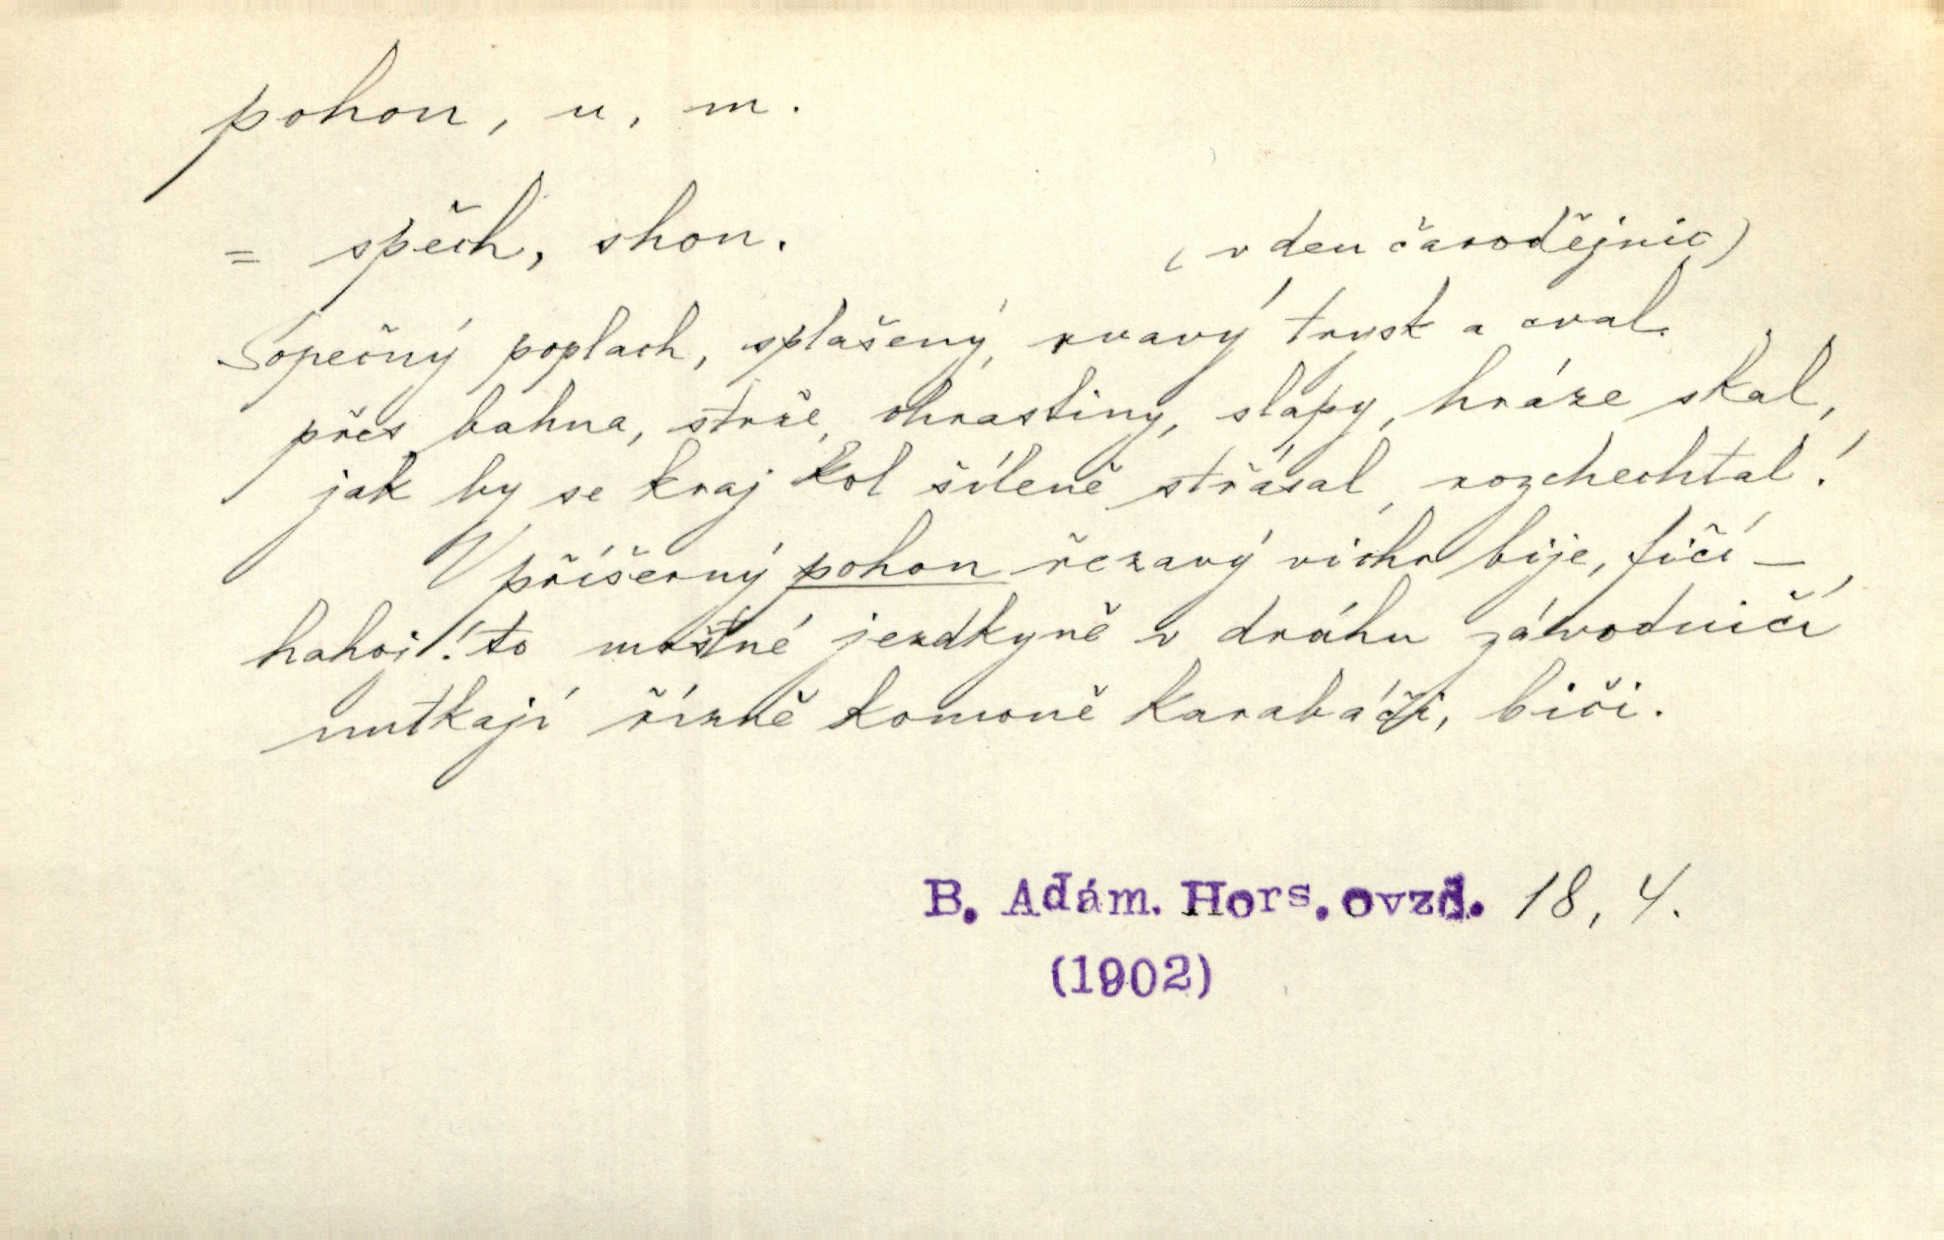 pohon, u, m.
= spěch, shon.
(v den čarodějnic)
Sopečný poplach, splašený, rvavý trysk a cval.
přes bahna, strže, chrastiny, slapy, hráze skal,
jak by se kraj kol šíleně střásal, rozchechtal!
V příšerný pohon řezavý vichr bije, fičí –
hahoj! to mštné jezdkyně v dráhu závodničí
nutkají řízně komoně karabáči, biči.
B. Adám. Hors. ovzd. 18, 4.
(1902)